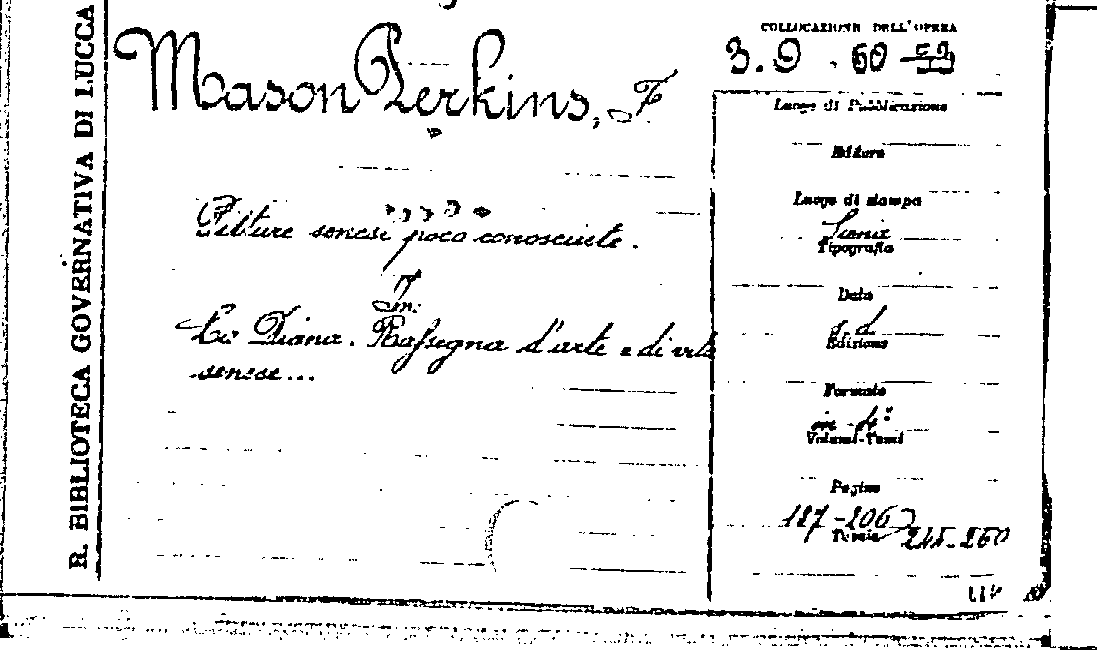 R. BIBLIOTECA GOVERNATIVA DI LUCCA
Mason Perkins, F
Pitture senesi poco conosciute.
In:
La Diana. Rassegna d'arte e di vita
senese...
COLLOCAZIONE DELL'OPERA
3.9.60
Luogo di Pubblicazione
Editore
Luogo di stampa
Siena
Tipografia
Data
s. d.
Edizione
Formato
in-4°
Volumi-Tomi
Pagine
187-206
245-260